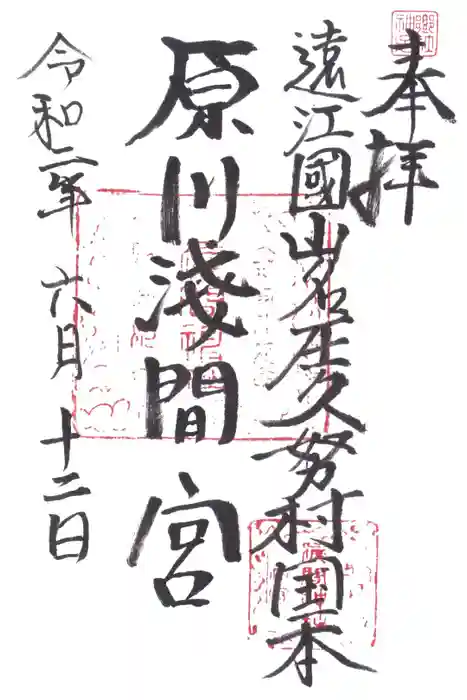 奉拝
遠江國山名居久努村国本
原川淺間宮
令和二年 六月 十二日